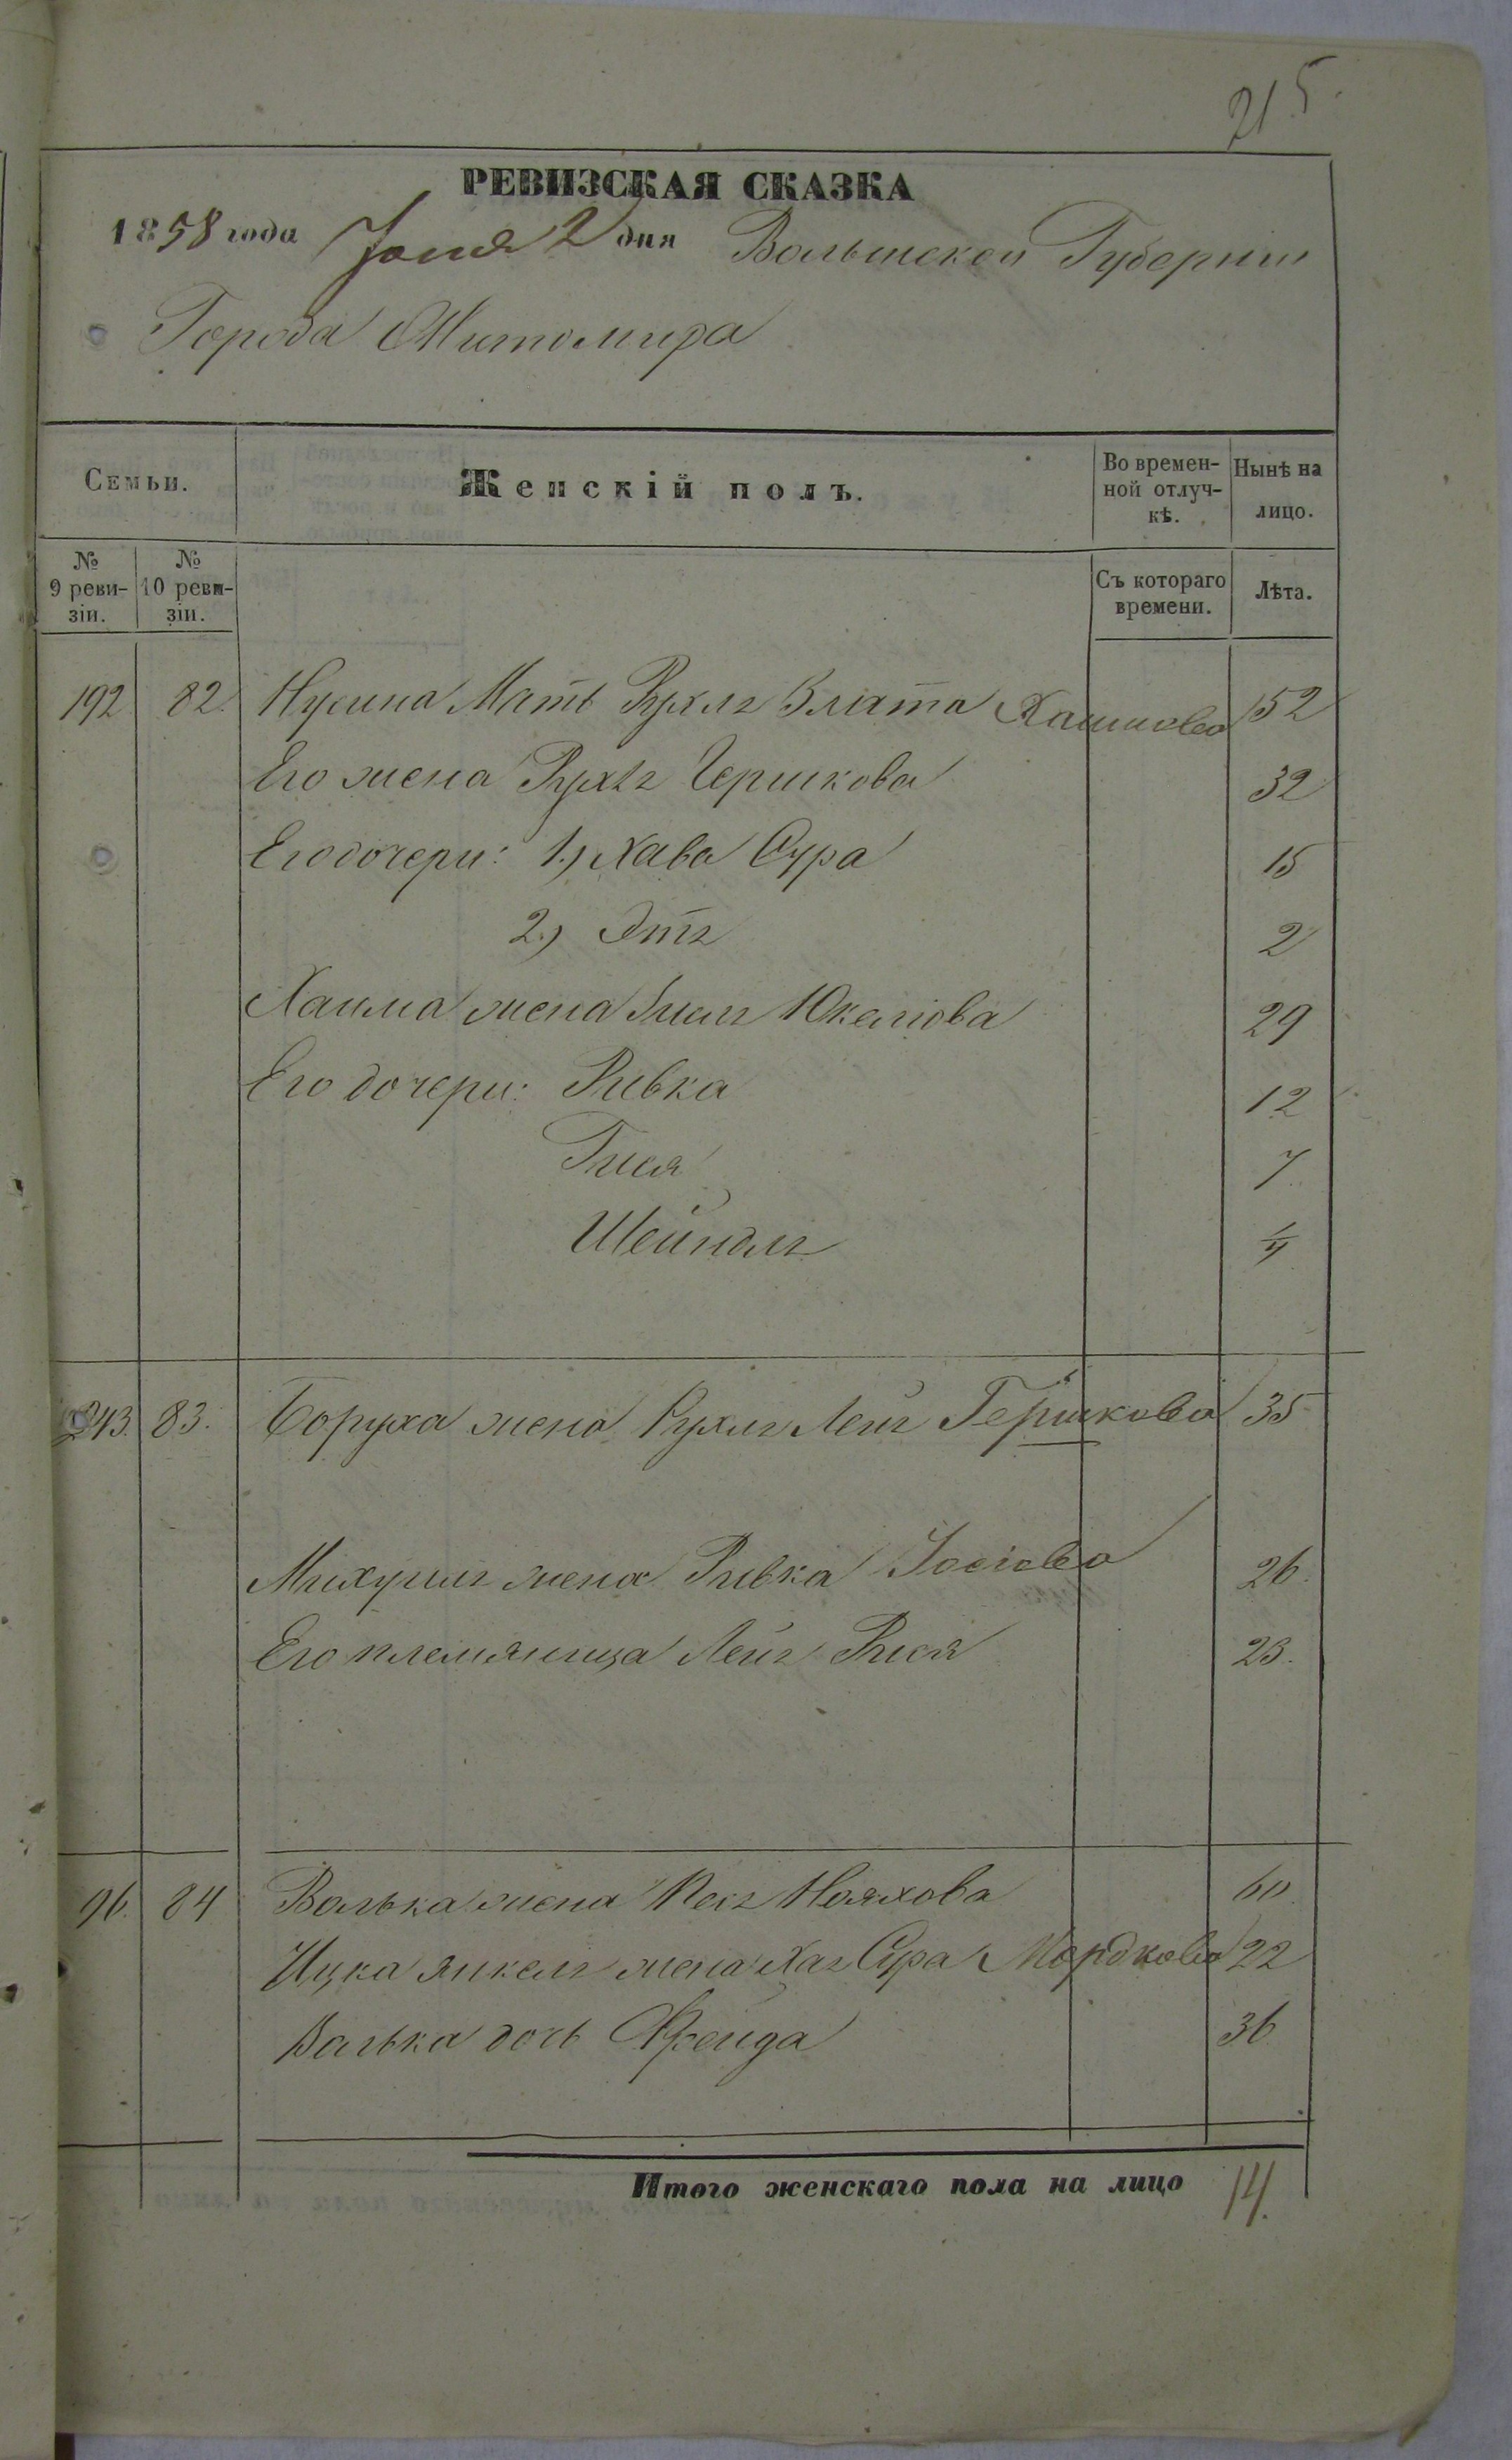 215.
РЕВИЗСКАЯ СКАЗКА
1858 года Іюня 2 дня Волынской Губерніи
Города Житомира
Семьи.
Женскій полъ.
Во времен-
ной отлуч-
кѣ.
Нынѣ на
лицо.
№
9 реви-
зіи.
№
10 реви-
зіи.
Съ котораго
времени.
Лѣта.
192 82. Нусина Мать Рухля Злата Хаимова 52
Его жена Рухля Гершкова 32
Его дочери: 1.) Хава Сура 15
2.) Этя 2
Хаима жена Юкелiова 29
Его дочери: Ривка 12
Гися 7.
Шейндля 1/4
243. 83. Боруха жена Рухля Лея Гершкова 35
Михуиля жена Ривка Іосіова 26.
Его племяница Лея Рися 23.
96. 84 Волька жена Песя Нояхова 60
Ицка Янкеля жена Хая Сура Мордкова 22
Волька дочь Фрейда 36
Итого женскаго пола на лицо 14.